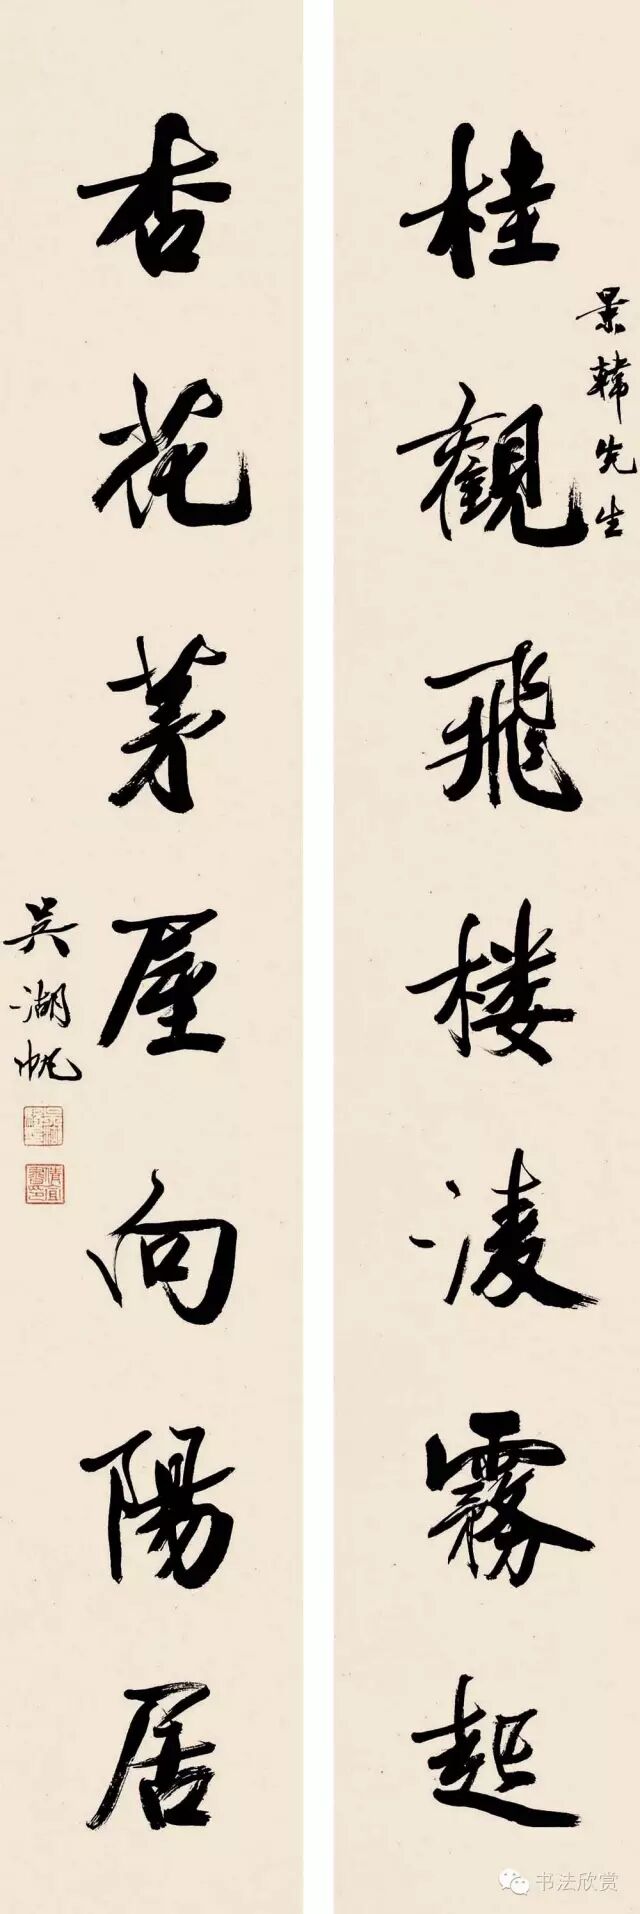 桂觀飛楼凌霧起
景韓先生
杏花茅屋向陽居
吳湖帆
书法欣赏